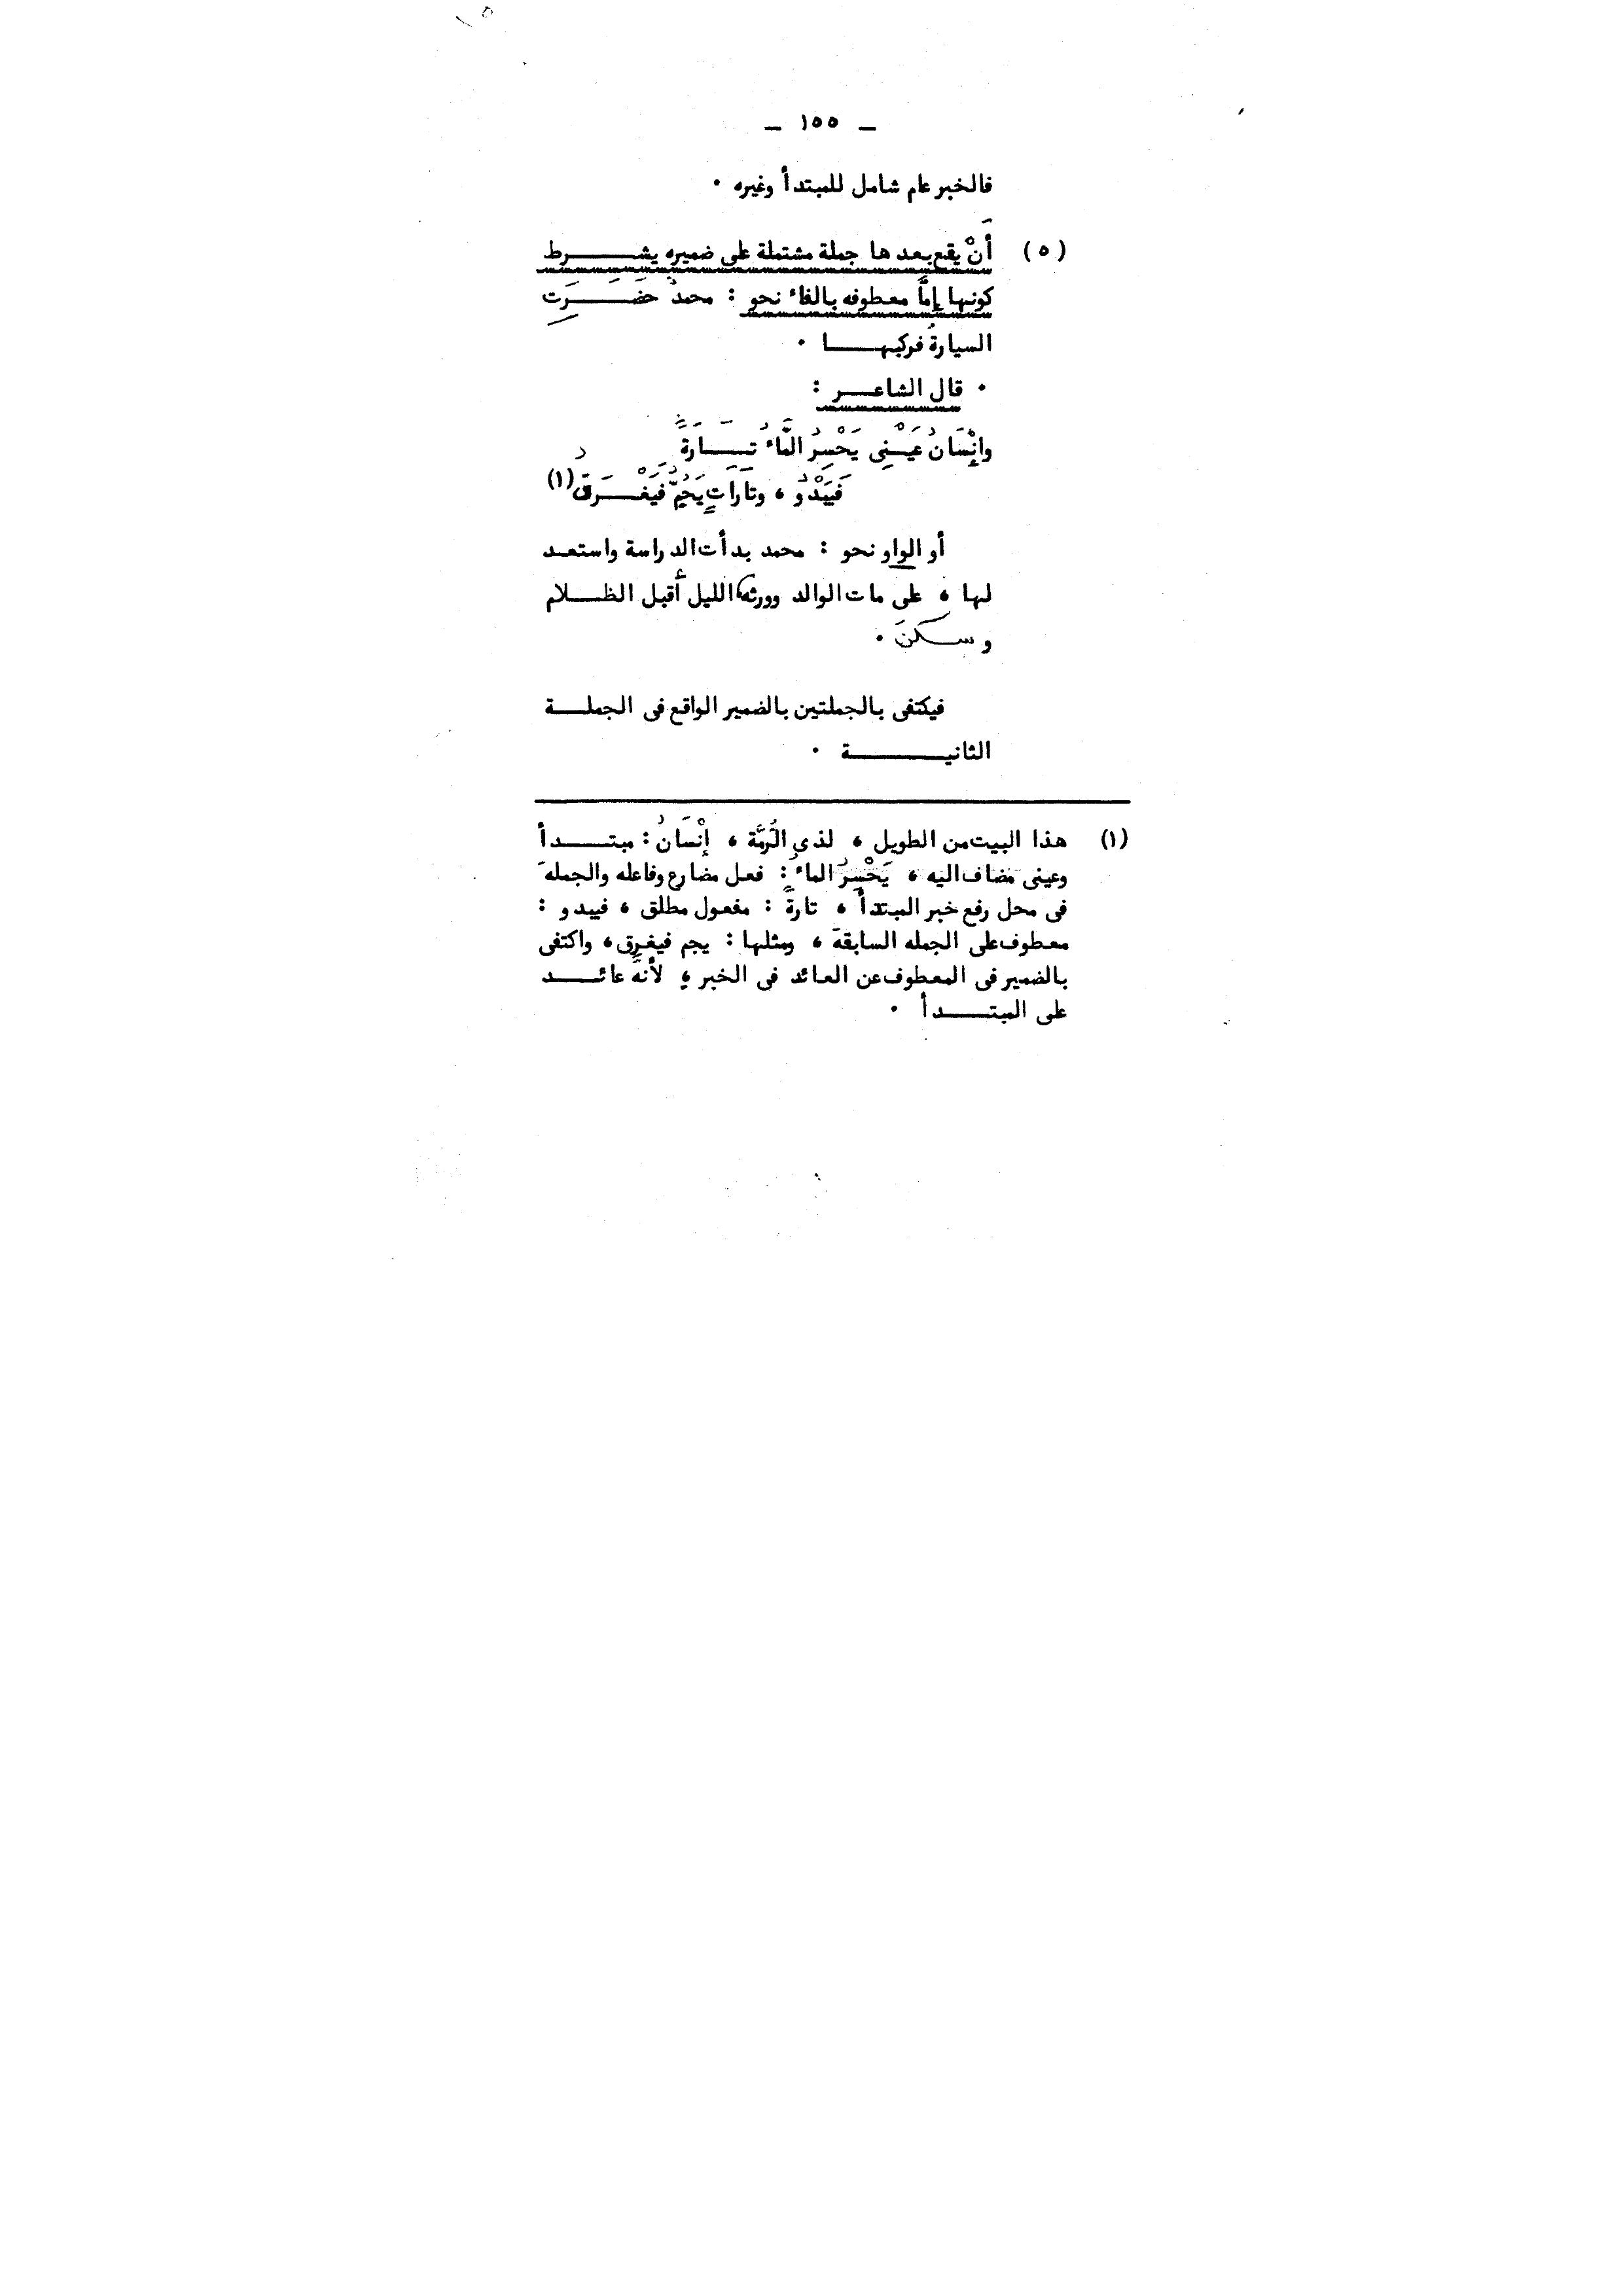 — ١٥٥ —
فالخبر عام شامل للمبتدأ وغيره .
(٥) أنْ يقع بعدها جملة مشتملة على ضميره يشرط
كونها إمَّا معطوفه بالفاء نحو : محمدُ حَضَرَت
السيارةُ فركبها .
. قال الشاعر :
وانْسَانُ عَيْنِى يَحْسِرُ المَّاءُ تَارَةً
فَيَبْدُو ، وتَارَاتٍ يَجُمُّ فَيَغْرَقُ (١)
أو الواو نحو : محمد بدأت الدراسة واستعد
لها ، على مات الوالد وورثه، الليل أقبل الظلام
وسكنَ .
فيكتفى بالجملتين بالضمير الواقع فى الجملة
الثانية .
(١) هذا البيت من الطويل ، لذى الرُّمَّة ، إنْسَانُ : مبتدأ
وعينى مضاف اليه ، يَحْسِرُ الماءُ : فعل مضارع وفاعله والجمله
فى محل رفع خبر المبتدأ ، تارةً : مفعول مطلق ، فيبدو :
معطوف على الجمله السابقة ، ومثلها : يجم فيغرق ، واكتفى
بالضمير فى المعطوف عن العائد فى الخبر ، لأنَّه عائد
على المبتدأ .